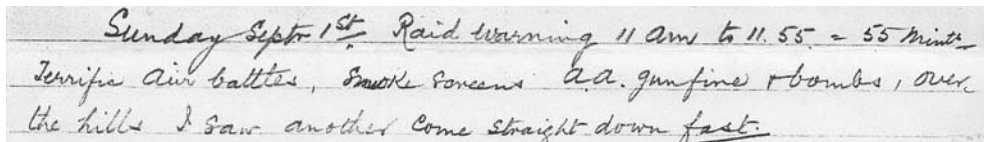 Sunday Septr 1st. Raid warning 11 am to 11.55. = 55 Mints
Terrific Air battles, Smoke screens A.A. gunfire & bombs, over
the hills I saw another come straight down fast.